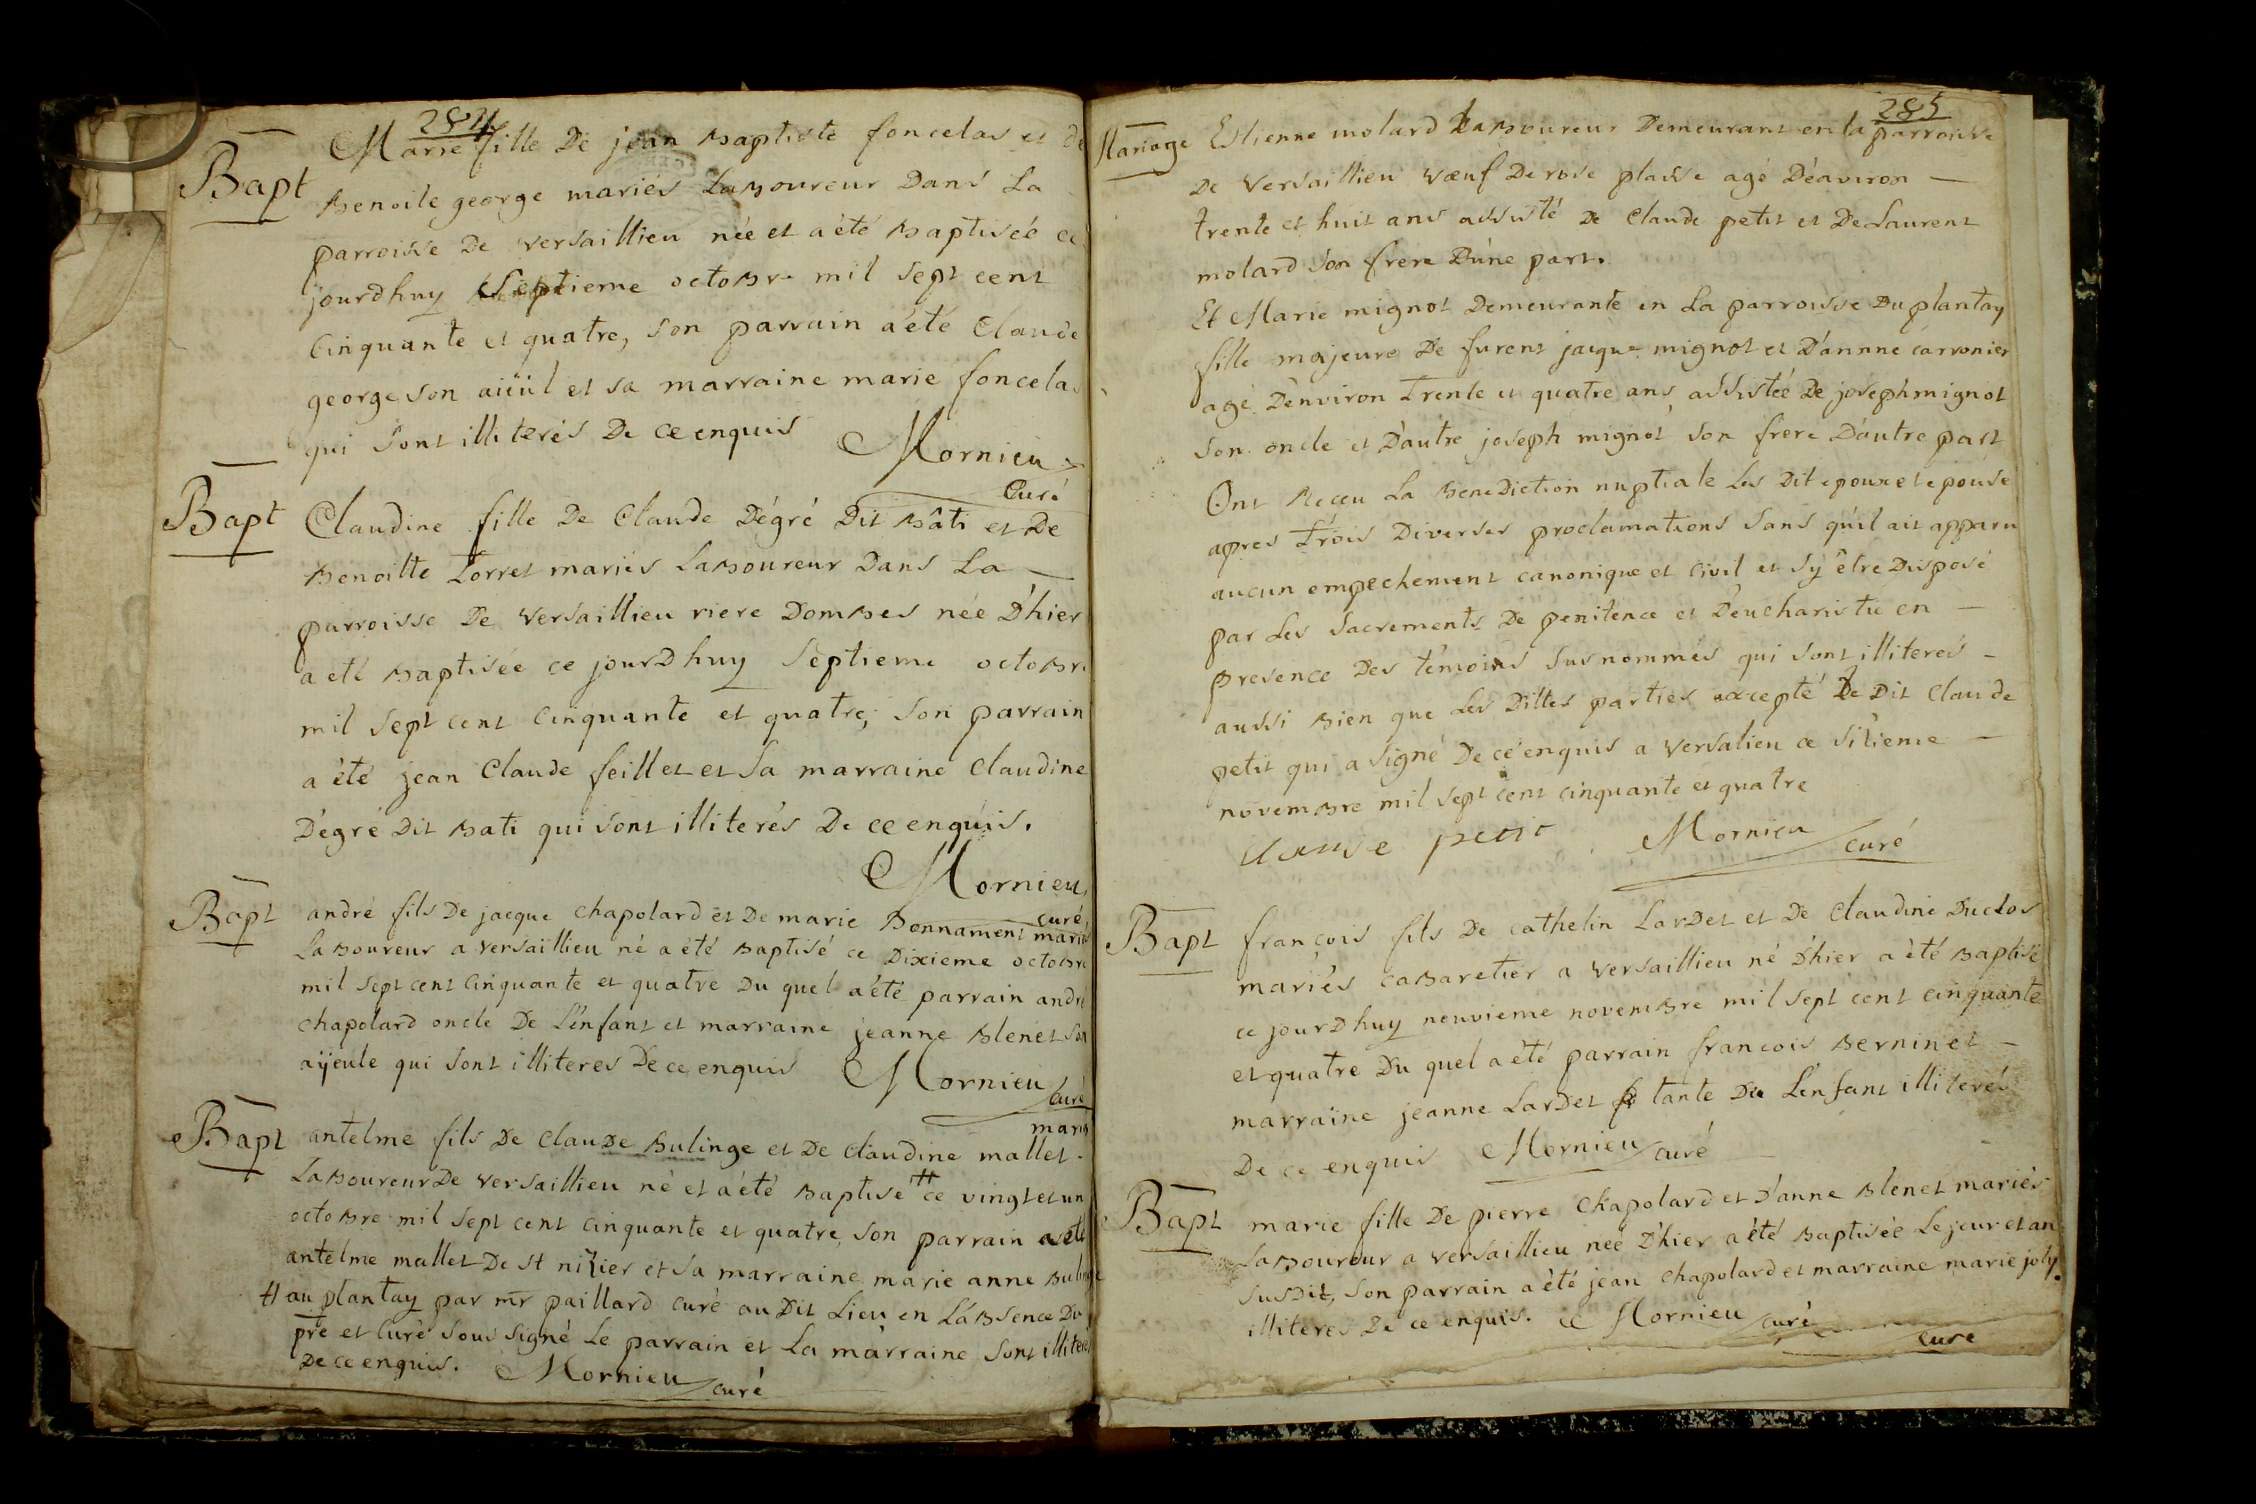 284
Bapt
Marie fille De jean Baptiste foncelas et de
Benoite george mariés Laboureur Dans La
parroisse De versaillieu née et a été Baptiseé ce
jourdhuy Septieme octobre mil sept cent
Cinquante et quatre, son parrain a été Claude
george son aïëul et sa marraine marie foncelas
qui sont illiterés De ce enquis Mornieu
Curé
Bapt
Claudine fille De Claude Dégré Dit Bâti et De
Benoitte Lorret mariés Laboureur Dans La —
parroisse De versaillieu riere Dombes née D'hier
a eté Baptisée ce jourDhuy Septieme octobre
mil sept cent Cinquante et quatre, son parrain
a été jean Claude feillet et sa marraine Claudine
Dégré Dit Bati qui sont illiterés De ce enquis.
Mornieu
curé
Bapt
andré fils De jacque chapolard et De marie Bonnament mariés
Laboureur a versaillieu né a été Baptisé ce Dixieme octobre
mil sept cent Cinquante et quatre Du quel a été parrain andré
chapolard oncle De L'enfant et marraine jeanne Blenet son
ayeule qui sont illiteres De ce enquis Mornieu
curé
Bapt
antelme fils De Claude Bulinge et De claudine mallet mariés
Laboureur De versaillieu né et a été Baptisé # ce vingt et un
octobre mil sept cent cinquante et quatre, son parrain a été
antelme mallet De st nizier et sa marraine marie anne Bulinge
# au plantay par mr paillard curé au Dit Lieu en L'absence Du
pre et Curé sous signé Le parrain et La marraine sont illiterés
De ce enquis. Mornieu curé
285
Mariage
Estienne molard Laboureur Demeurant en la parroisse
De versaillieu vœuf De rose plasse agé D'eaviron —
trente et huit ans assisté De Claude petit et De Laurent
molard son frere D'une part.
Et Marie mignot Demeurante en La parroisse Du plantay
fille majeure De furent jacque mignot et D'annne carronier
agé D'environ trente et quatre ans assistée De joseph mignot
son oncle et D'autre joseph mignot son frere D'autre part
Ont Reçeu La BeneDiction nuptiale Les Dit epoux et epouse
apres trois Diverses proclamations sans qu'il ait apparu
aucun empechement canonique et Civil et s'y être Disposé
par Les sacrements De penitence et D'eucharistie en —
presence Des témoins susnommés qui sont illiterés —
aussi Bien que Les Dittes parties excepté Le Dit Claude
petit qui a signé De ce enquis a versalieu ce sizieme —
novembre mil sept cent cinquante et quatre
claude petit Mornieu curé
Bapt
françois fils De cathelin LarDet et De claudine Duclos
mariés caBaretier a versaillieu né D'hier a été Baptisé
ce jourDhuy neuvieme novembre mil sept cent cinquante
et quatre Du quel a été parrain francois Berninet —
marraine jeanne LarDet tante De L'enfant illiterés
De ce enquis Mornieu curé
Bapt
marie fille De pierre Chapolard et D'anne Blenet mariés
Laboureur a versaillieu née D'hier a été Baptisée Le jour et an
susDit, son parrain a été jean chapolard et marraine marie joly.
illiteres De ce enquis. Mornieu curé
curé